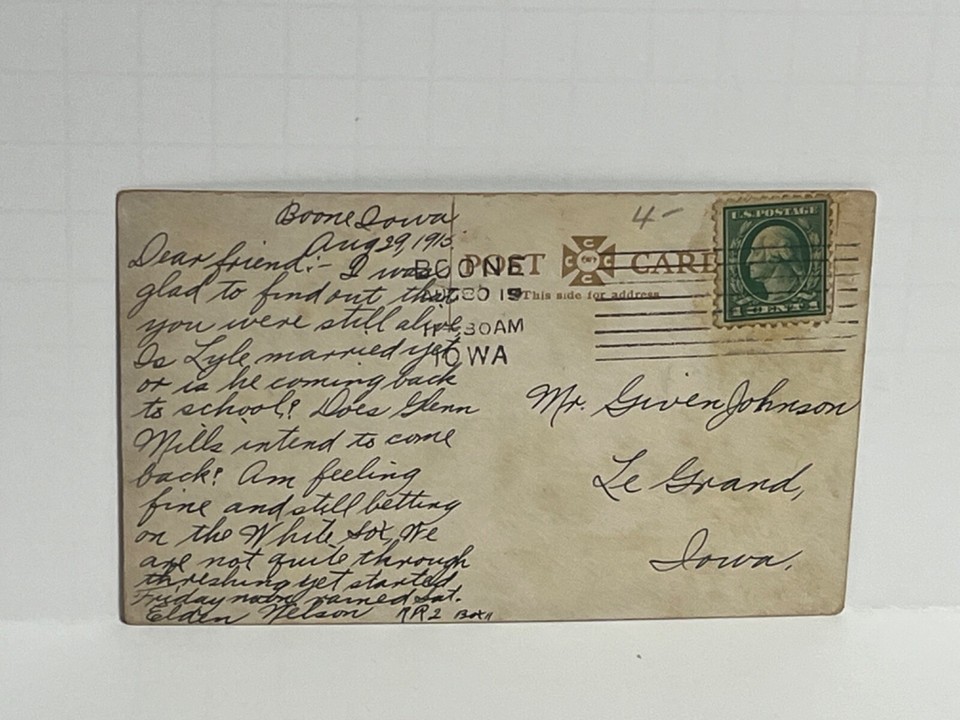 Boone Iowa
Aug 29, 1915
Dear friend:- I was
glad to find out that
you were still alive
Is Lyle married yet
or is he coming back
to school? Does Glenn
Mills intend to come
back? Am feeling
fine and still betting
on the White Sox, We
are not quite through
threshing yet started
Friday noon, rained Sat.
Elden Nelson RR2 Box 11
4-
POST CARD
This side for address
BOONE
30 15
30AM
IOWA
U.S. POSTAGE
1 CENT 1
Mr. Given Johnson
Le Grand,
Iowa.